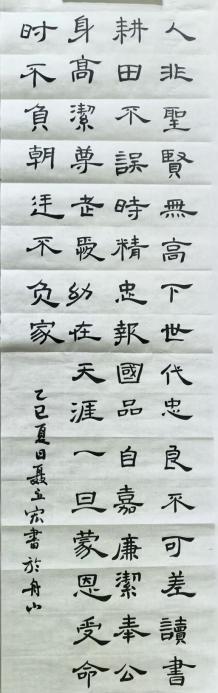 人非聖賢無高下世代忠良不可差讀書
耕田不誤時精忠報國品自嘉廉潔奉公
身高潔尊老愛幼在天涯一旦蒙恩受命
时不負朝廷不负家
乙巳夏日聶宏書於舟山